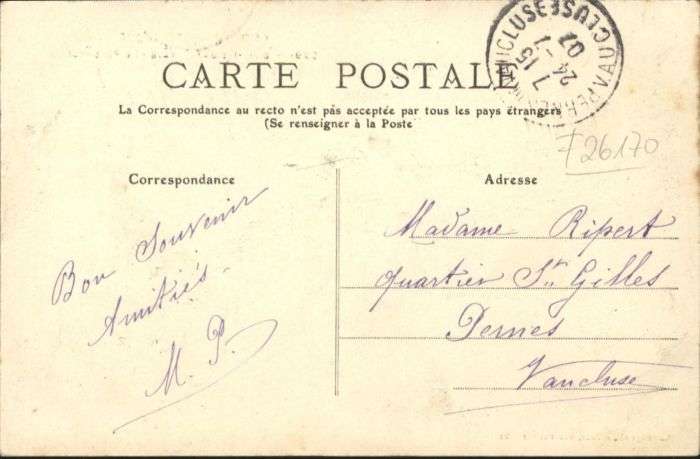 CARTE POSTALE
La Correspondance au recto n'est pas acceptée par tous les pays étrangers
(Se renseigner à la Poste
Correspondance
Bon Souvenir
Amitiés
M. P.
Adresse
Madame Ripert
quartier St Gilles
Pernes
Vaucluse
VAUCLUSE
7 15
24 - 7
07
F 26170